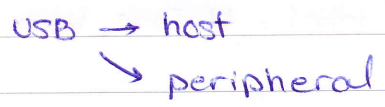 USB → host
↘ peripheral